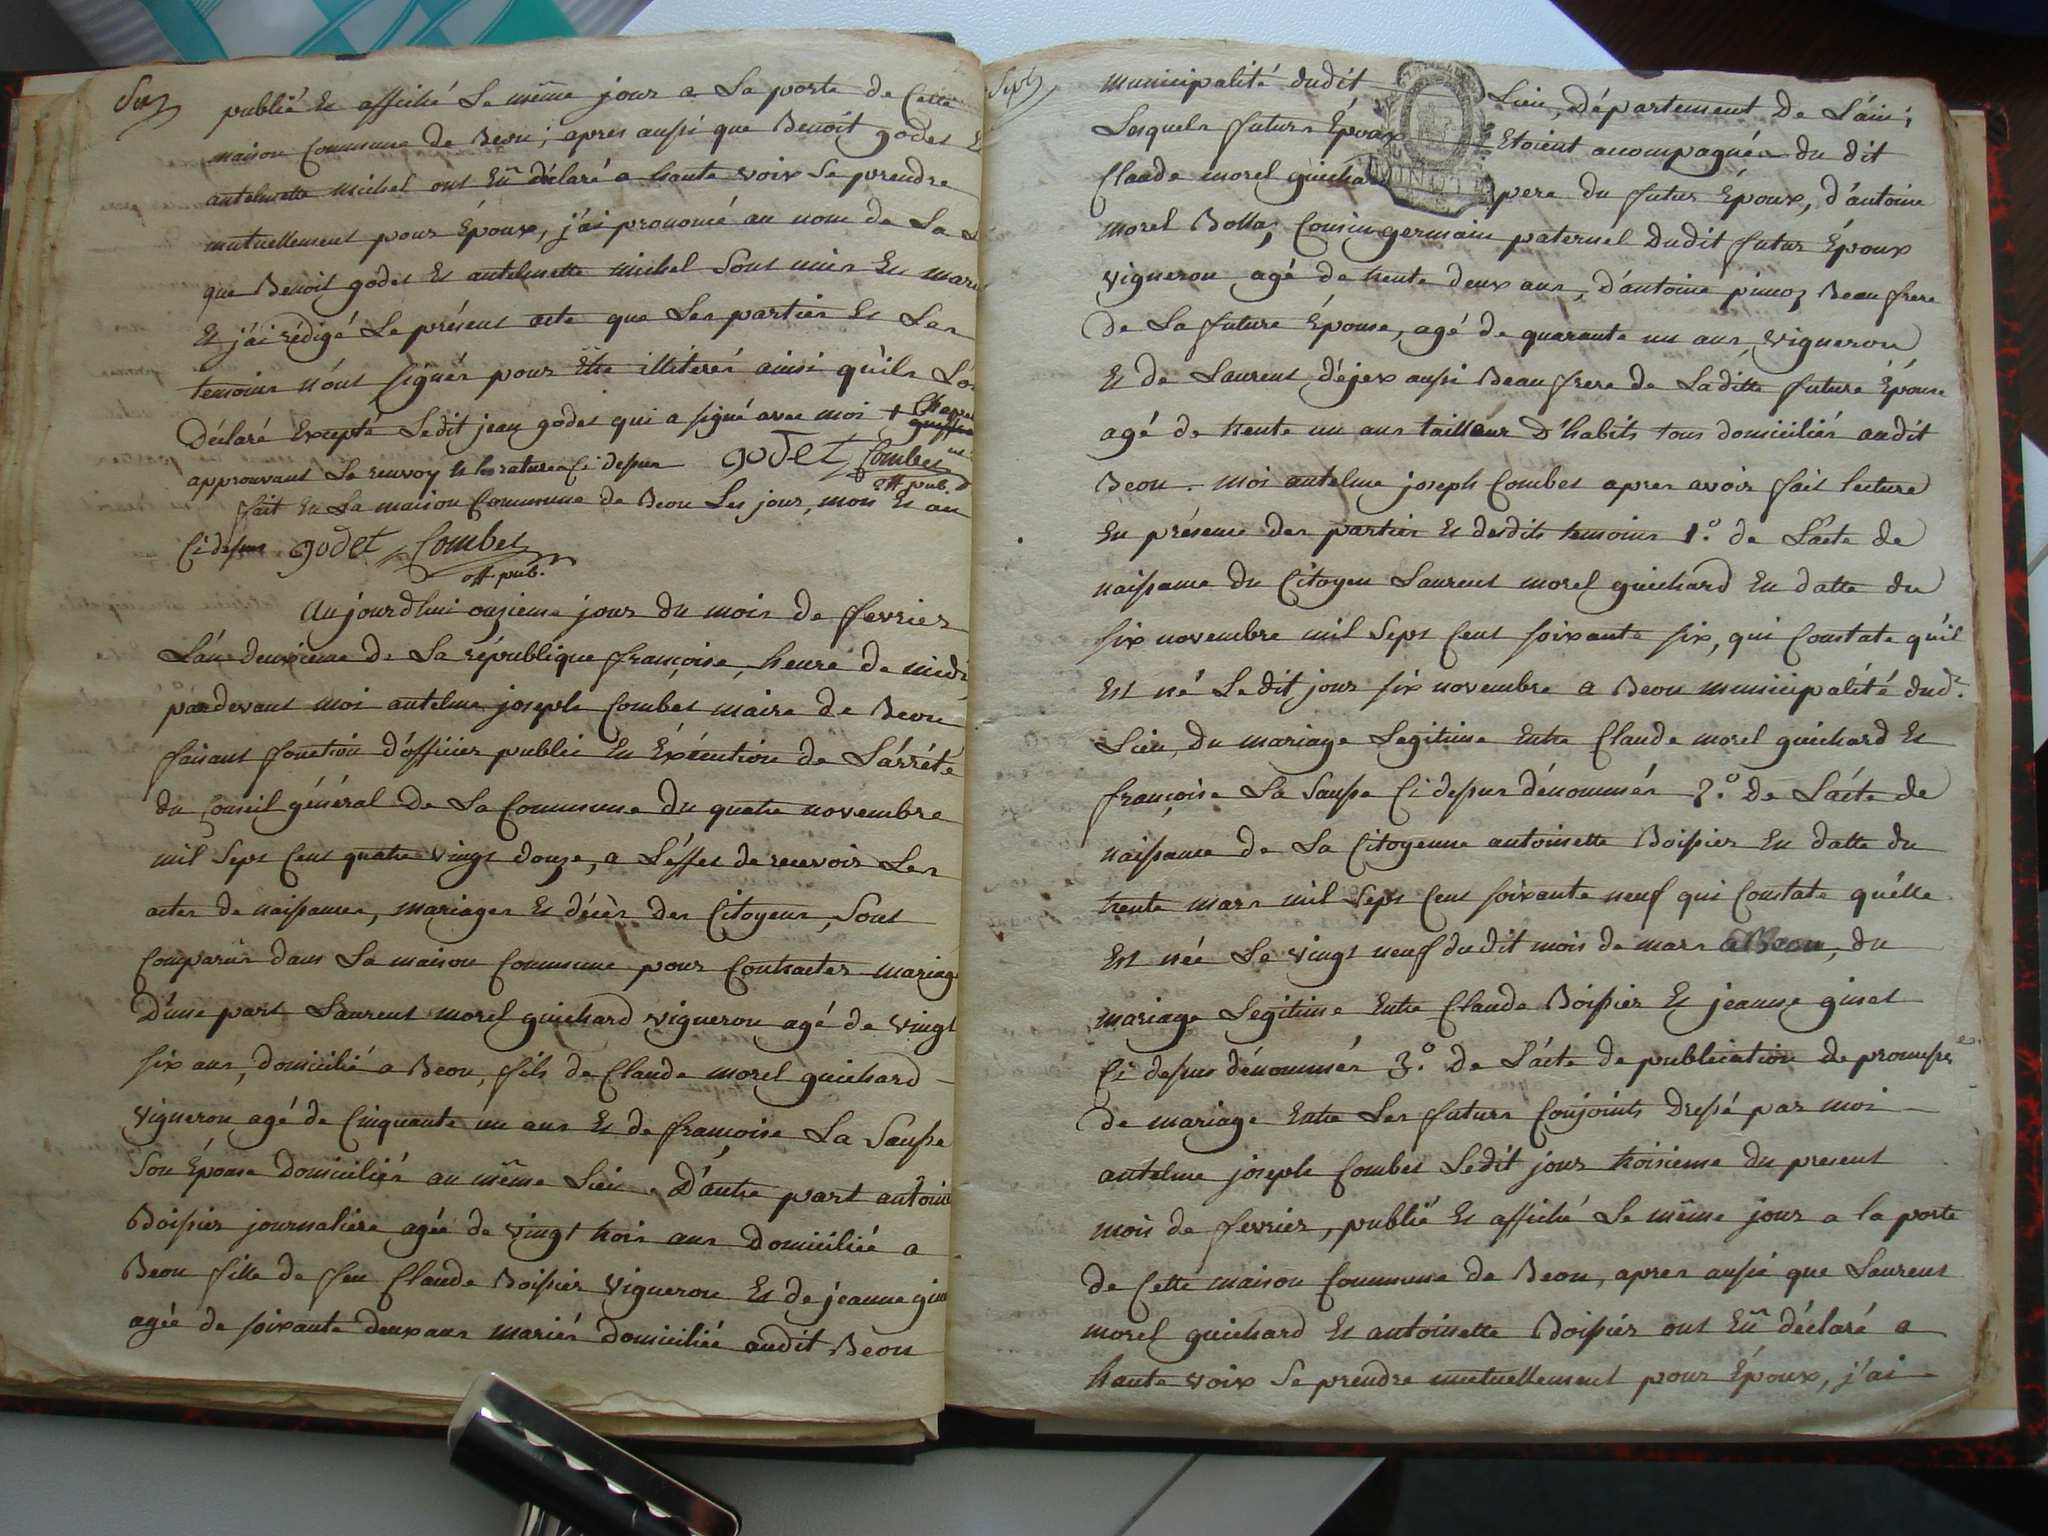 Six
publié Et affiché Le même jour a La porte de Cette
maison Commune de Beon; apres aussi que Benoit godet Et
antelmette michel ont Eu déclaré a haute voix Se prendre
mutuellement pour Époux, j'ai prononcé au nom de La
que Benoit godet Et antelmette michel Sont unis En
Et j'ai rédigé Le présent acte que Les parties Et Les
temoins n'ont signés pour Etre illiterés ainsi qu'ils L'o
Déclaré Excepté Ledit jean godet qui a signé avec moi +
approuvant Le renvoy Ci dessus godet Combet
off. pub.
fait En La maison Commune de Beon Les jour, mois Et an
Ci dessus godet Combet
off. pub.
Aujourdhui onzieme jour du mois de fevrier
L'an deuxieme de La république françoise, heure de midi
pardevant moi antelme joseph Combet maire de Beon
faisant fonction d'officier public En Éxécution de L'arrété
du Conseil général de La Commune du quatre novembre
mil Sept Cent quatre vingt douze, a L'éffet de recevoir Les
actes de naissances, mariages Et décès des Citoyens, Sont
Comparus dans La maison Commune pour Contracter mariage
D'une part Laurent morel guichard vigneron agé de vingt
six ans, domicilié a Beon, fils de Claude morel guichard
vigneron agé de Cinquante un ans Et de françoise La Sausse
Son Épouse domiciliés au même Lieu. D'autre part antoin
Boissier journaliere agée de vingt trois ans Domiciliée a
Beon fille de feu Claude Boissier vigneron Et de jeanne gin
agée de soixante deux ans mariés domiciliée audit Beon
Sept
municipalité dudit Lieu, Département De L'ain;
Lesquels futurs Époux Etoient acompagnés du dit
Claude morel guichard pere du futur Époux, d'antoine
morel Bollaz Cousin germain paternel Dudit futur Époux
vigneron agé de trente deux ans, d'antoine pinoz Beau frere
de La future Épouse, agé de quarante un ans vigneron
Et de Laurent déjex aussi Beau frere de Laditte future Épouse
agé de trente un ans tailleur D'habits tous domiciliés audit
Beon. moi antelme joseph Combet apres avoir fait lecture
En présence des parties Et desdits temoins 1.° de L'acte de
naissance du Citoyen Laurent morel guichard En datte du
six novembre mil Sept Cent soixante six, qui Constate qu'il
Est né Le dit jour six novembre a Beon municipalité dud.t
Lieu, du mariage Legitime Entre Claude morel guichard Et
françoise La Sausse Ci dessus dénommés 2.° de L'acte de
naissance de La Citoyenne antoinette Boissier En datte du
trente mars mil Sept Cent soixante neuf qui Constate qu'elle
Est née Le vingt neuf dudit mois de mars a Beon, du
mariage Legitime Entre Claude Boissier Et jeanne ginet
Ci dessus dénommés 3.° de L'acte de publication de promesse
de mariage Entre Les futurs Conjoints Dressé par moi
antelme joseph Combet Ledit jour troisieme du present
mois de fevrier, publié Et affiché Le même jour a la porte
de Cette maison Commune de Beon, apres aussi que Laurent
morel guichard Et antoinette Boissier ont Eu déclaré a
haute voix Se prendre mutuellement pour Époux, j'ai